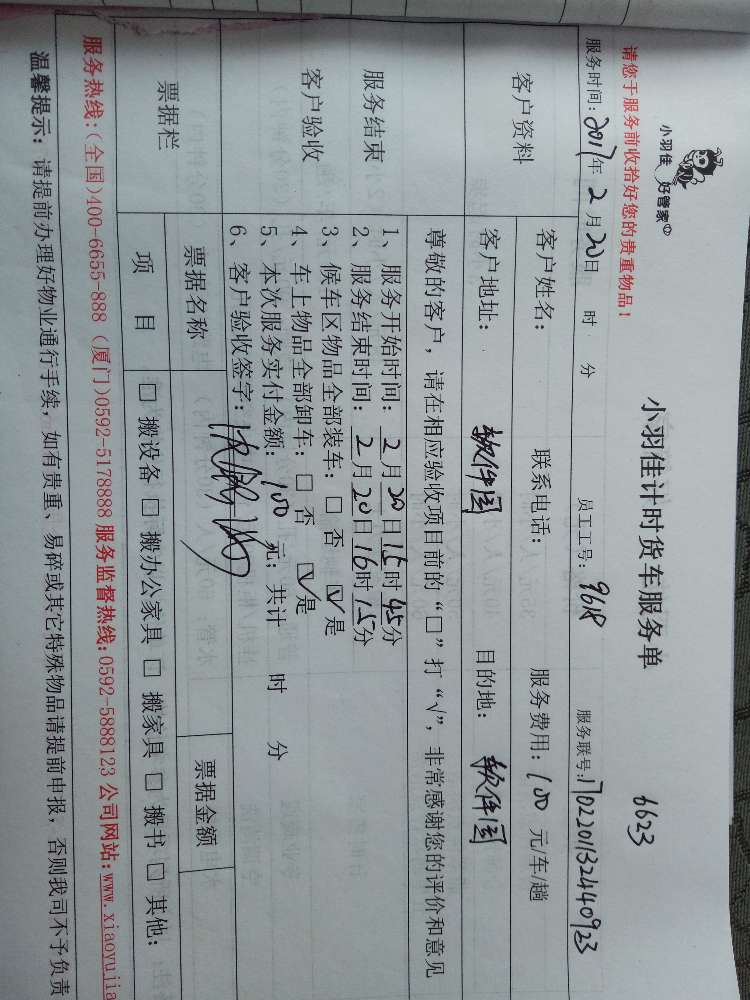 小羽佳 好管家
小羽佳计时货车服务单 6623
请您于服务前收拾好您的贵重物品！
服务时间：2017年2月20日 时 分 员工工号：9618 服务联号：170220113244０923
客户资料
客户姓名： 联系电话： 服务费用：100元/车/趟
客户地址：软件园 目的地：软件园
服务结束
客户验收
尊敬的客户，请在相应验收项目前的“□”打“√”，非常感谢您的评价和意见
1、服务开始时间：2月20日15时45分
2、服务结束时间：2月20日16时15分
3、候车区物品全部装车：□ 否 ☑ 是
4、车上物品全部卸车：□ 否 ☑ 是
5、本次服务实付金额：100元；共计 时 分
6、客户验收签字：
票据栏
票据名称 票据金额
项 目 □ 搬设备 □ 搬办公家具 □ 搬家具 □ 搬书 □ 其他：
服务热线：(全国)400-6655-888 (厦门)0592-5178888 服务监督热线：0592-5888123 公司网站：www.xiaoyujia
温馨提示：请提前办理好物业通行手续，如有贵重、易碎或其它特殊物品请提前申报，否则我司不予负责